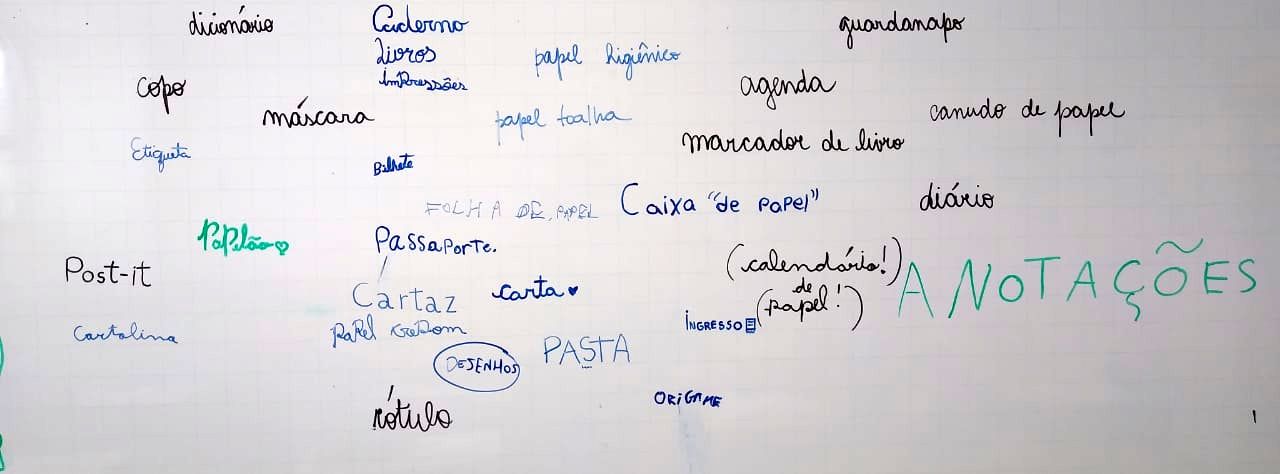 dicionário
Caderno
guardanapo
Livros
papel higiênico
impressões
copo
agenda
máscara
papel toalha
canudo de papel
marcador de livro
Etiqueta
Bilhete
FOLHA DE PAPEL
Caixa "de papel"
diário
Papelão
Passaporte.
Post-it
(calendário!)
de
papel!)
ANOTAÇÕES
Cartaz
carta
INGRESSO
Cartolina
papel crepom
DESENHOS
PASTA
ORIGAME
rótulo